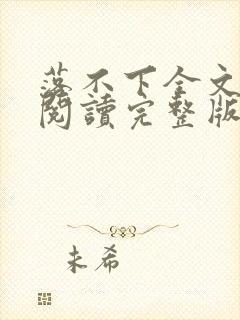 落不下全文
閱讀完整版
未希